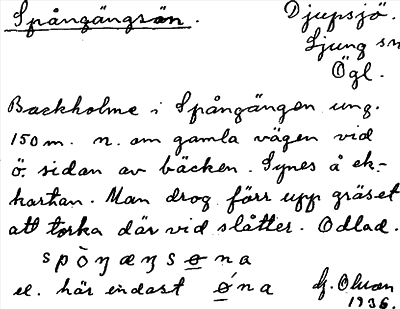 Spångängsön.
Djupsjö.
Ljung sn
Ögl.
Backholme i Spångängen ung.
150 m. n. om gamla vägen vid
ö. sidan av bäcken. Synes å ek.-
kartan. Man drog förr upp gräset
att torka där vid slåtter. Odlad.
spòŋæŋsɵna
el. här endast ɵ́na
1936.